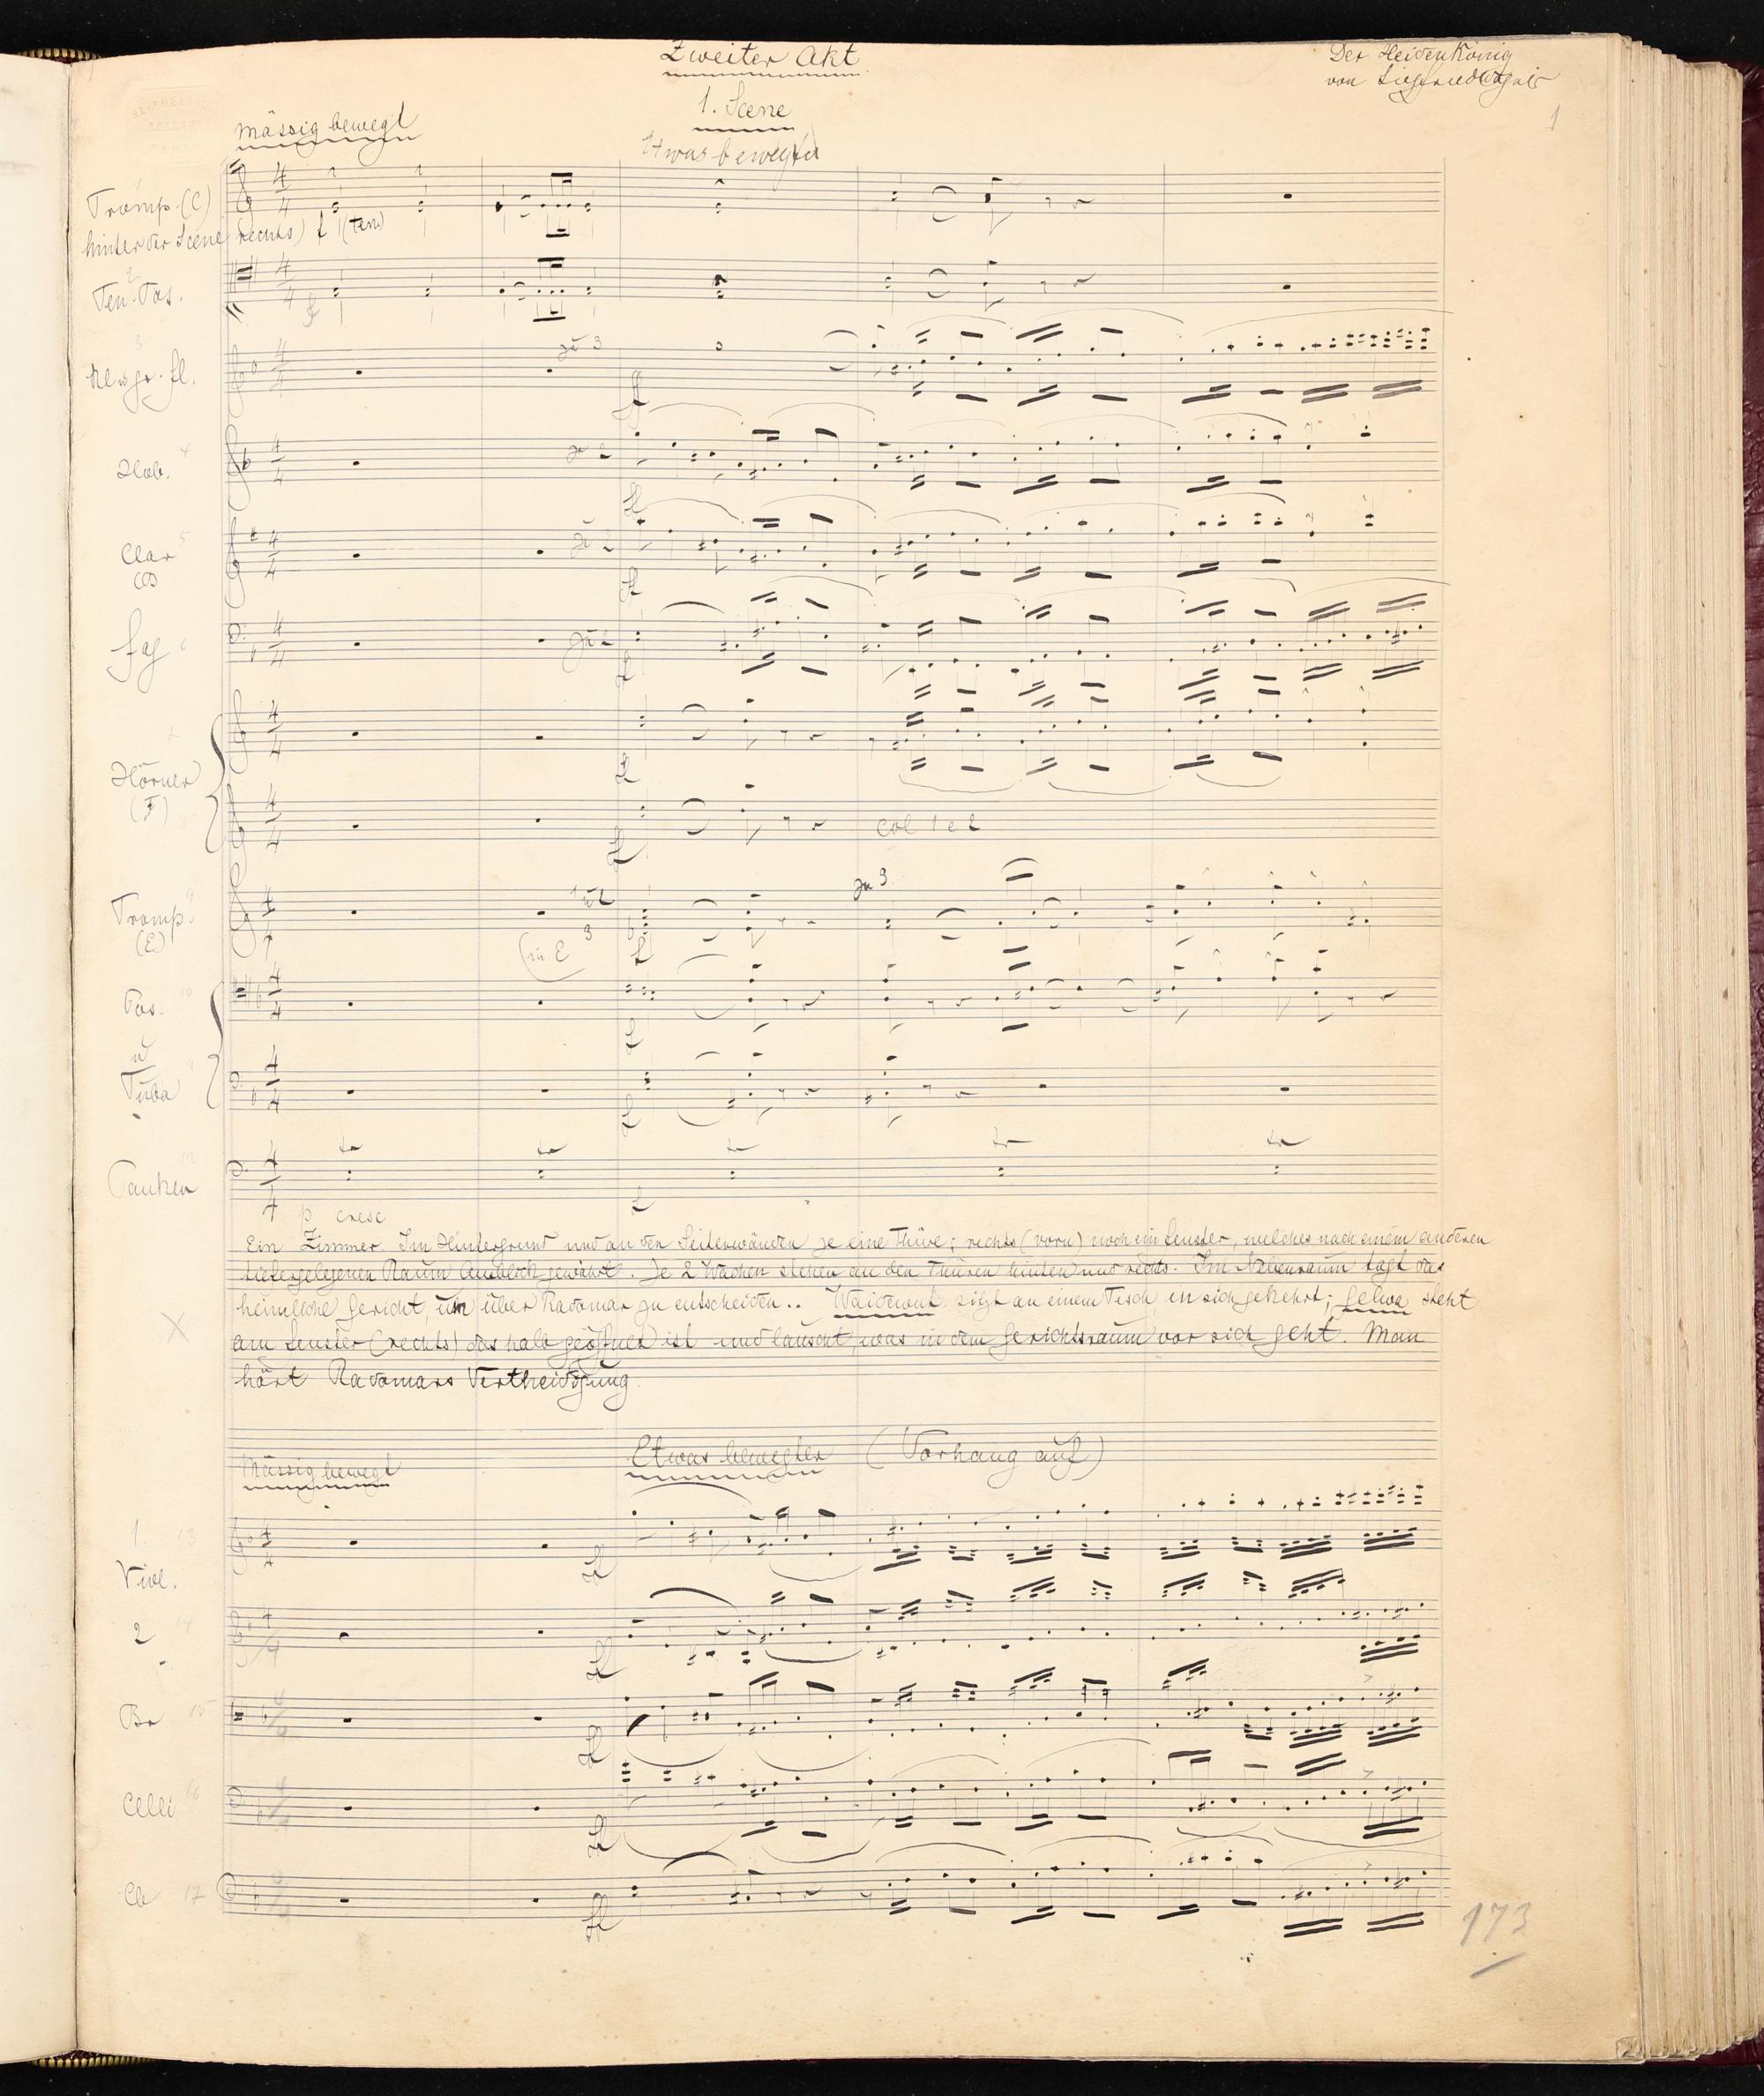 Zweiter Akt
Der Heidenkönig
von Siegfried Wagner
1. Scene
1
Mässig bewegt
Etwas bewegter
Tromp. (C)
hinter der Scene rechts) f (ten)
Ten. Pos.
zu 3
kl u gr. Fl.
Hob.
zu 2
Clar
zu 2
Fag
zu 2
Hörner
(F)
col 1 e 2
Tromp.
(E)
(in E
zu 3
Pos.
u
Tuba
Pauken
p cresc
Ein Zimmer. Im Hintergrund und an den Seitenwänden je eine Thüre; rechts (vorn) noch ein Fenster, welches nach einem anderen
tiefergelegenen Raum Ausblick gewährt. Je 2 Wachen stehen an den Thüren hinten und rechts. Im Nebenraum tagt das
heimliche Gericht, um über Radomar zu entscheiden.. Waidewut sitzt an einem Tisch in sich gekehrt; Gelwa steht
am Fenster (rechts) das halb geöffnet ist und lauscht, was in dem Gerichtsraum vor sich geht. Man
hört Radomars Vertheidigung.
Mässig bewegt
Etwas bewegter (Vorhang auf)
1. 13
Viol.
2 14
Br 15
Celli 16
Cb 17
173